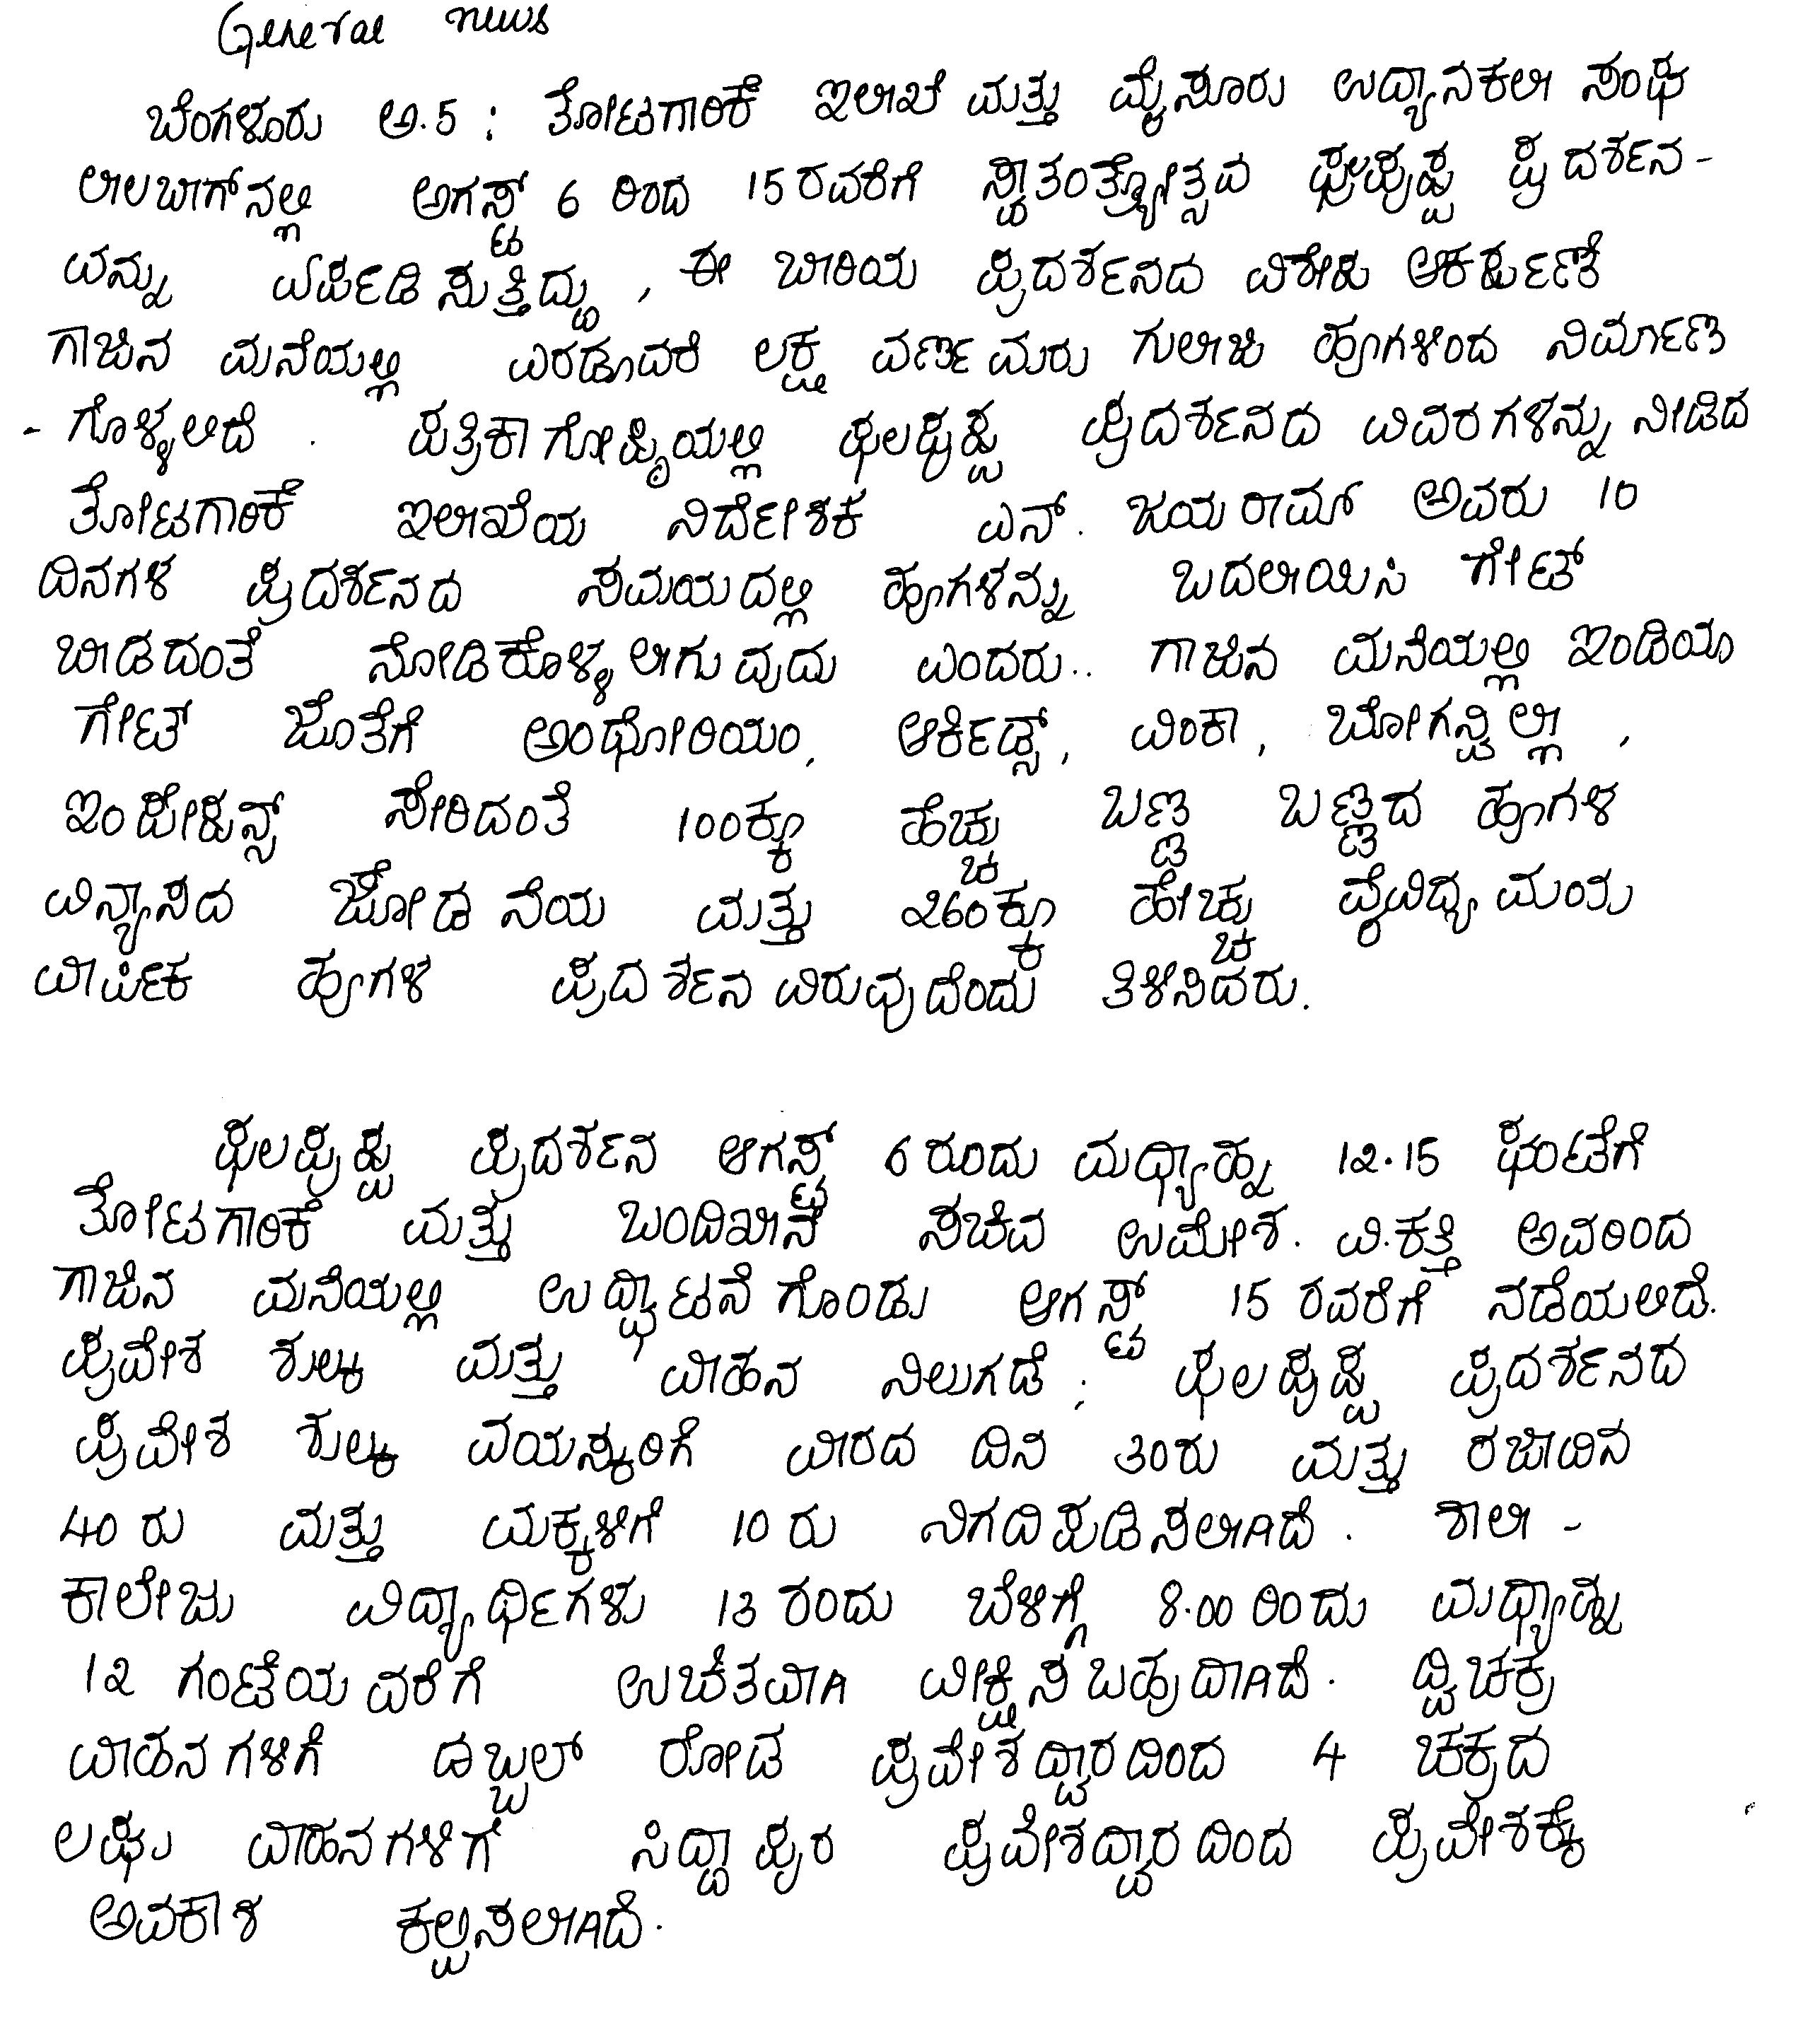 General news
ಬೆಂಗಳೂರು ಅ.5 : ತೋಟಗಾರಿಕೆ ಇಲಾಖೆ ಮತ್ತು ಮೈಸೂರು ಉದ್ಯಾನಕಲಾ ಸಂಘ
ಲಾಲಬಾಗ್‌ನಲ್ಲಿ ಅಗಸ್ಟ್ 6 ರಿಂದ 15ರವರೆಗೆ ಸ್ವಾತಂತ್ರ್ಯೋತ್ಸವ ಫಲಪುಷ್ಪ ಪ್ರದರ್ಶನ-
ವನ್ನು ಏರ್ಪಡಿಸುತ್ತಿದ್ದು, ಈ ಬಾರಿಯ ಪ್ರದರ್ಶನದ ವಿಶೇಷ ಆಕರ್ಷಣೆ
ಗಾಜಿನ ಮನೆಯಲ್ಲಿ ಎರಡೂವರೆ ಲಕ್ಷ ವರ್ಣಮರು ಗುಲಾಬಿ ಹೂಗಳಿಂದ ನಿರ್ಮಾಣ
- ಗೊಳ್ಳಲಿದೆ. ಪತ್ರಿಕಾಗೋಷ್ಠಿಯಲ್ಲಿ ಫಲಪುಷ್ಪ ಪ್ರದರ್ಶನದ ವಿವರಗಳನ್ನು ನೀಡಿದ
ತೋಟಗಾರಿಕೆ ಇಲಾಖೆಯ ನಿರ್ದೇಶಕ ಎನ್. ಜಯರಾಮ್ ಅವರು 10
ದಿನಗಳ ಪ್ರದರ್ಶನದ ಸಮಯದಲ್ಲಿ ಹೂಗಳನ್ನು ಬದಲಾಯಿಸಿ ಗೇಟ್
ಬಾಡದಂತೆ ನೋಡಿಕೊಳ್ಳಲಾಗುವುದು ಎಂದರು.. ಗಾಜಿನ ಮನೆಯಲ್ಲಿ ಇಂಡಿಯಾ
ಗೇಟ್ ಜೊತೆಗೆ ಅಂಥೋರಿಯಂ, ಆರ್ಕಿಡ್ಸ್, ವಿಂಕಾ, ಬೋಗನ್ವಿಲ್ಲಾ,
ಇಂಪೇಷನ್ಸ್ ಸೇರಿದಂತೆ 100ಕ್ಕೂ ಹೆಚ್ಚು ಬಣ್ಣ ಬಣ್ಣದ ಹೂಗಳ
ವಿನ್ಯಾಸದ ಜೋಡನೆಯ ಮತ್ತು 260ಕ್ಕೂ ಹೇಚ್ಚು ವೈವಿಧ್ಯಮಯ
ವಾರ್ಷಿಕ ಹೂಗಳ ಪ್ರದರ್ಶನವಿರುವುದೆಂದು ತಿಳಿಸಿದರು.
ಫಲಪುಷ್ಪ ಪ್ರದರ್ಶನ ಆಗಸ್ಟ್ 6ರಂದು ಮಧ್ಯಾಹ್ನ 12.15 ಘಂಟೆಗೆ
ತೋಟಗಾರಿಕೆ ಮತ್ತು ಬಂದಿಖಾನೆ ಸಚಿವ ಉಮೇಶ. ವಿ.ಕತ್ತಿ ಅವರಿಂದ
ಗಾಜಿನ ಮನೆಯಲ್ಲಿ ಉದ್ಘಾಟನೆಗೊಂಡು ಆಗಸ್ಟ್ 15 ರವರೆಗೆ ನಡೆಯಲಿದೆ.
ಪ್ರವೇಶ ಶುಲ್ಕ ಮತ್ತು ವಾಹನ ನಿಲುಗಡೆ ; ಫಲಪುಷ್ಪ ಪ್ರದರ್ಶನದ
ಪ್ರವೇಶ ಶುಲ್ಕ ವಯಸ್ಕರಿಗೆ ವಾರದ ದಿನ 30ರು ಮತ್ತು ರಜಾದಿನ
40 ರು ಮತ್ತು ಮಕ್ಕಳಿಗೆ 10 ರು ನಿಗದಿಪಡಿಸಲಾಗಿದೆ. ಶಾಲಾ -
ಕಾಲೇಜು ವಿದ್ಯಾರ್ಥಿಗಳು 13 ರಂದು ಬೆಳಿಗ್ಗೆ 8.00 ರಿಂದು ಮಧ್ಯಾಹ್ನ
12 ಗಂಟೆಯವರೆಗೆ ಉಚಿತವಾಗಿ ವೀಕ್ಷಿಸಬಹುದಾಗಿದೆ. ದ್ವಿಚಕ್ರ
ವಾಹನಗಳಿಗೆ ಡಬ್ಬಲ್ ರೋಡ ಪ್ರವೇಶದ್ವಾರದಿಂದ 4 ಚಕ್ರದ
ಲಘು ವಾಹನಗಳಿಗೆ ಸಿದ್ದಾಪುರ ಪ್ರವೇಶದ್ವಾರದಿಂದ ಪ್ರವೇಶಕ್ಕೆ
ಅವಕಾಶ ಕಲ್ಪಿಸಲಾಗಿದೆ.